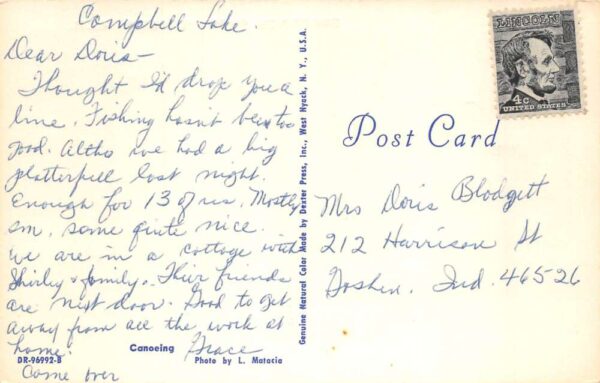 Campbell Lake.
Dear Doris—
Thought I'd drop you a
line. Fishing hasn't been too
good. Altho we had a big
platterfull last night.
Enough for 13 of us. Mostly
sm. some quite nice.
We are in a cottage with
Shirley & family. Their friends
are next door. Good to get
away from all the work at
home.
Grace
Come over
Canoeing
DR-96992-B
Photo by L. Matacia
Genuine Natural Color Made by Dexter Press, Inc., West Nyack, N. Y., U.S.A.
LINCOLN
4c
UNITED STATES
Post Card
Mrs Doris Blodgett
212 Harrison St
Goshen, Ind. 46526